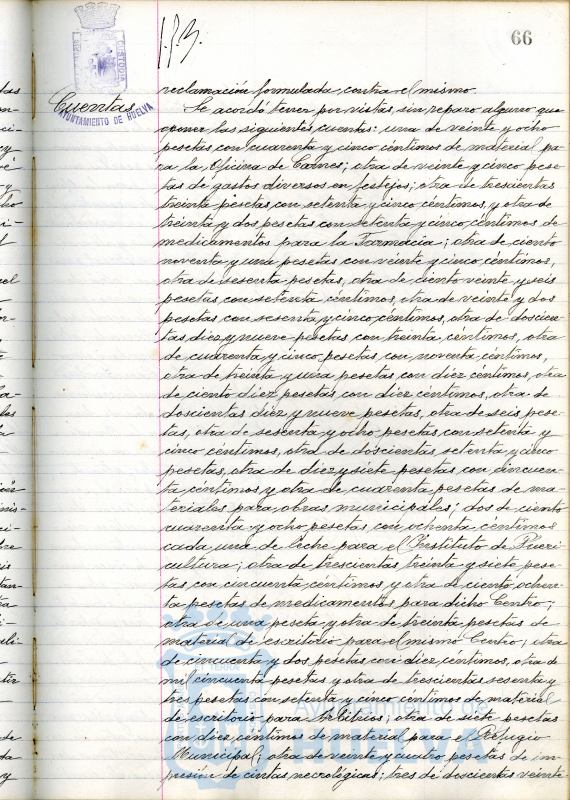 66
reclamación formulada contra el mismo.
Cuentas
AYUNTAMIENTO DE HUELVA
Se acordó tener por vistas, sin reparo alguno que
oponer las siguientes cuentas: una de veinte y ocho
pesetas con cuarenta y cinco céntimos de material pa-
ra la Oficina de Carnes; otra de veinte y cinco pese-
tas de gastos diversos en festejos; otra de trescientas
treinta pesetas con setenta y cinco céntimos, y otra de
treinta y dos pesetas con setenta y cinco céntimos de
medicamentos para la Farmacia; otra de ciento
noventa y una pesetas con veinte y cinco céntimos,
otra de sesenta pesetas, otra de ciento veinte y seis
pesetas con setenta céntimos, otra de veinte y dos
pesetas con sesenta y cinco céntimos, otra de doscien-
tas diez y nueve pesetas con treinta céntimos, otra
de cuarenta y cinco pesetas con noventa céntimos,
otra de treinta y una pesetas con diez céntimos, otra
de ciento diez pesetas con diez céntimos, otra de
doscientas diez y nueve pesetas, otra de seis pese-
tas, otra de sesenta y ocho pesetas con setenta y
cinco céntimos, otra de doscientas setenta y cinco
pesetas, otra de diez y siete pesetas con cincuen-
ta céntimos y otra de cuarenta pesetas de ma-
teriales para obras municipales; dos de ciento
cuarenta y ocho pesetas con ochenta céntimos
cada una de leche para el Instituto de Pueri-
cultura; otra de trescientas treinta y siete pese-
tas con cincuenta céntimos y otra de ciento ochen-
ta pesetas de medicamentos para dicho Centro;
otra de una peseta y otra de treinta pesetas de
material de escritorio para el mismo Centro; otra
de cincuenta y dos pesetas con diez céntimos, otra de
mil cincuenta pesetas y otra de trescientas sesenta y
tres pesetas con setenta y cinco céntimos de material
de escritorio para Arbitrios; otra de siete pesetas
con diez céntimos de material para el Refugio
Municipal; otra de veinte y cuatro pesetas de im-
presión de cintas necrológicas; tres de doscientas veinte
Ayuntamiento de
HUELVA